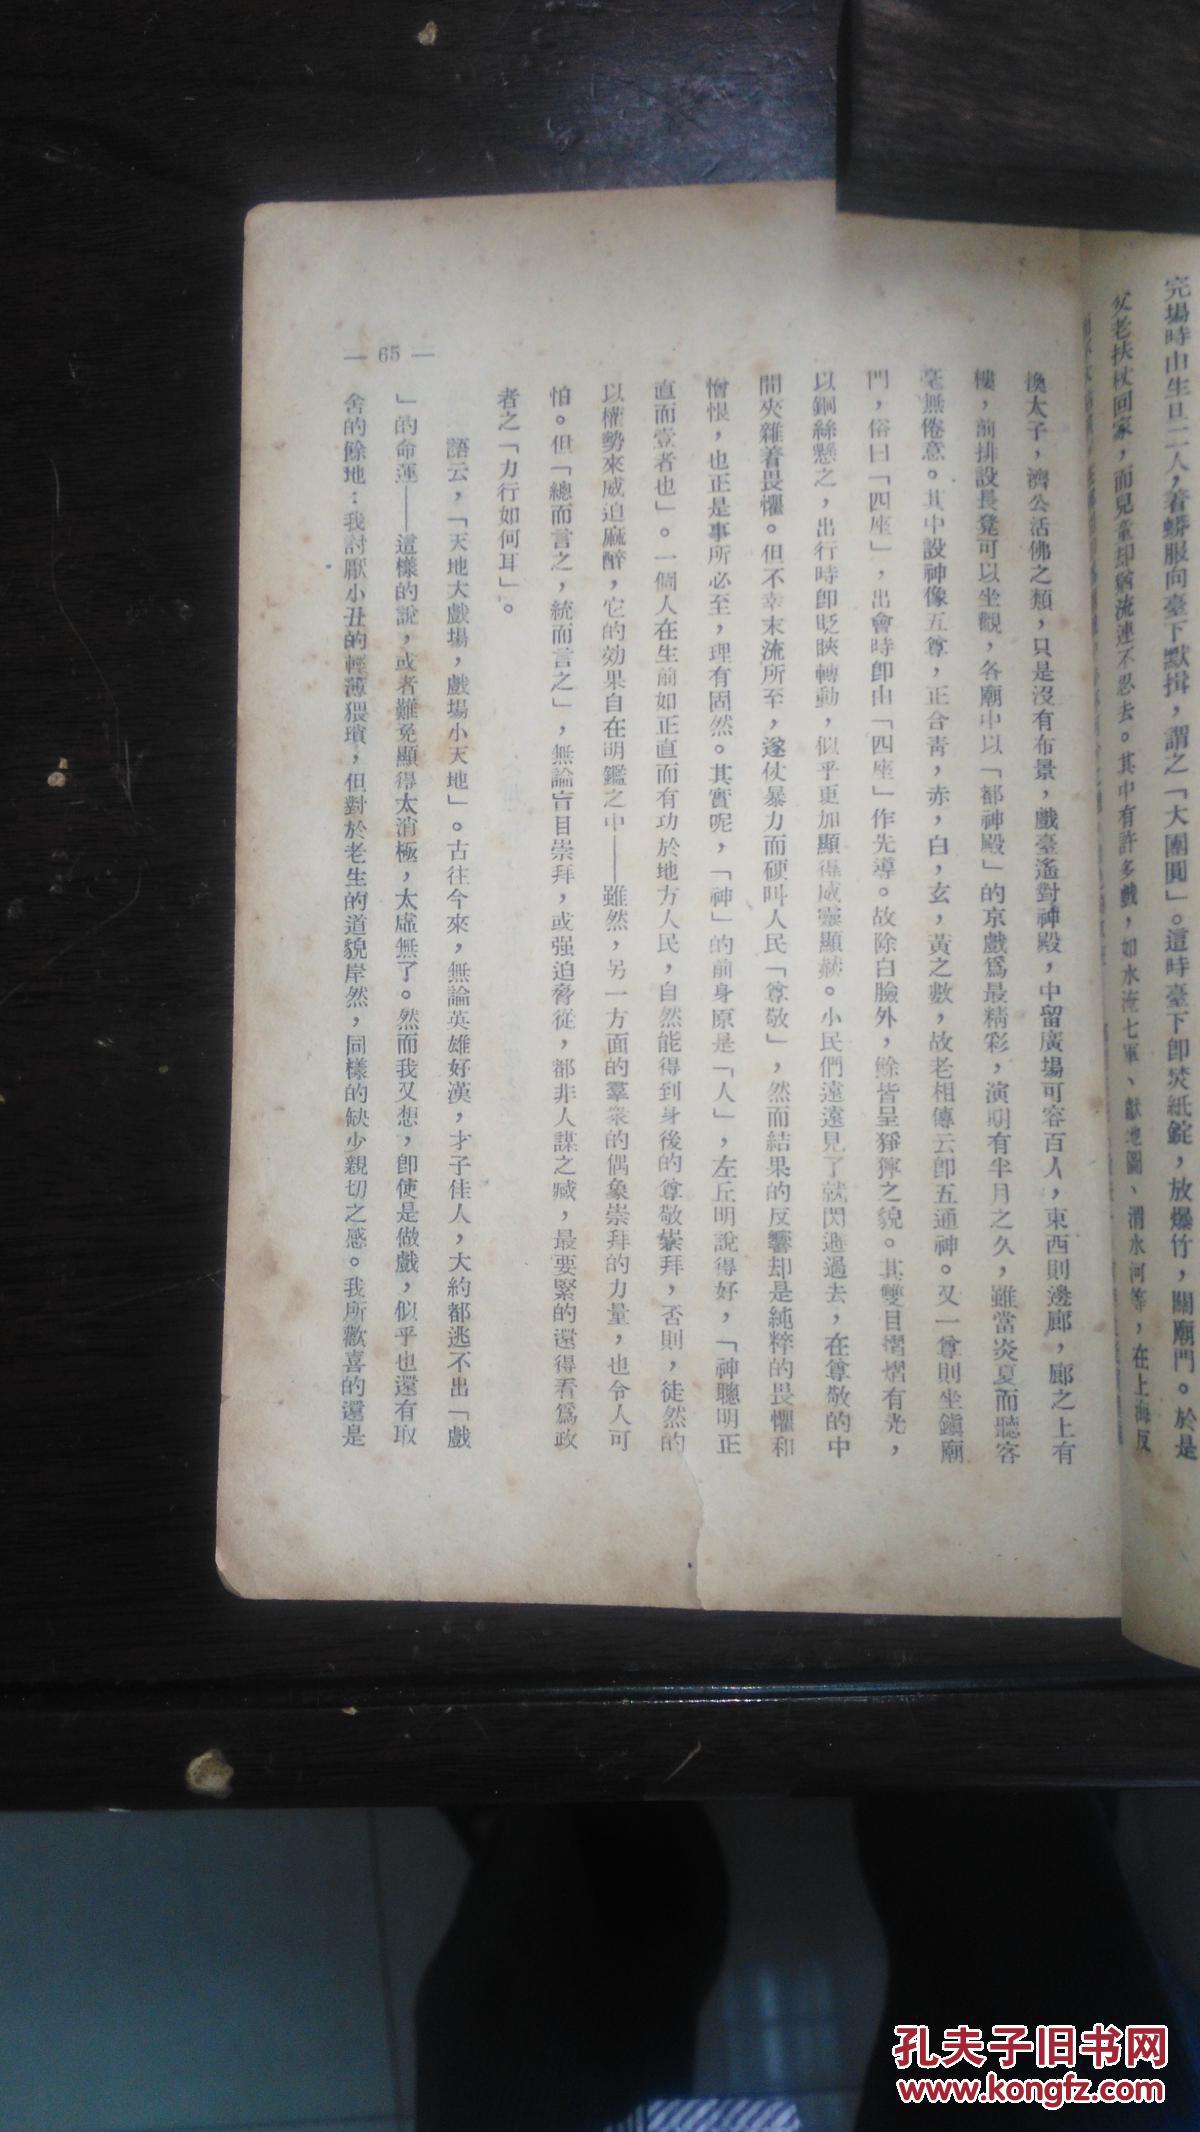 完場時由生旦二人，着蟒服向臺下默揖，謂之「大團圓」。這時臺下卽焚紙錠，放爆竹，關廟門。於是
父老扶杖回家，而兒童却猶流連不忍去。其中有許多戲，如水淹七軍、獻地圖、渭水河等，在上海反
換太子，濟公活佛之類，只是沒有布景，戲臺遙對神殿，中留廣場可容百人，東西則邊廊，廊之上有
樓，前排設長凳可以坐觀，各廟中以「都神殿」的京戲爲最精彩，演期有半月之久，雖當炎夏而聽客
毫無倦意。其中設神像五尊，正合靑，赤，白，玄，黃之數，故老相傳云卽五通神。又一尊則坐鎭廟
門，俗曰「四座」，出會時卽由「四座」作先導。故除白臉外，餘皆呈猙獰之貌。其雙目熠熠有光，
以銅絲懸之，出行時卽眨䀹轉動，似乎更加顯得威靈顯赫。小民們遠遠見了就閃避過去，在尊敬的中
間夾雜着畏懼。但不幸末流所至，遂仗暴力而硬叫人民「尊敬」，然而結果的反響却是純粹的畏懼和
憎恨，也正是事所必至，理有固然。其實呢，「神」的前身原是「人」，左丘明說得好，「神聰明正
直而壹者也」。一個人在生前如正直而有功於地方人民，自然能得到身後的尊敬崇拜，否則，徒然的
以權勢來威迫麻醉，它的効果自在明鑑之中——雖然，另一方面的羣衆的偶象崇拜的力量，也令人可
怕。但「總而言之，統而言之」，無論盲目崇拜，或强迫脅從，都非人謀之臧，最要緊的還得看爲政
者之「力行如何耳」。
語云，「天地大戲場，戲場小天地」。古往今來，無論英雄好漢，才子佳人，大約都逃不出「戲
」的命運——這樣的說，或者難免顯得太消極，太虛無了。然而我又想，卽使是做戲，似乎也還有取
舍的餘地：我討厭小丑的輕薄猥瑣，但對於老生的道貌岸然，同樣的缺少親切之感。我所歡喜的還是
— 65 —
孔夫子旧书网
www.kongfz.com